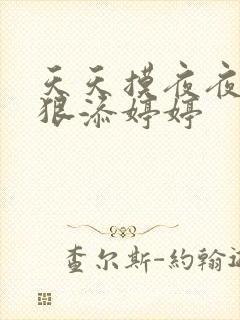 天天摸夜夜
狠添婷婷
查尔斯-約翰遜